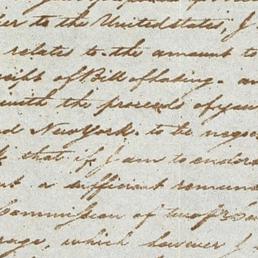 to the United states, I
relates to the amount to
of Bill of lading. an
with the proceeds of your
d New York. to be nego
that if I am to endors
t a sufficient remune
Commission of two
rage, which however I